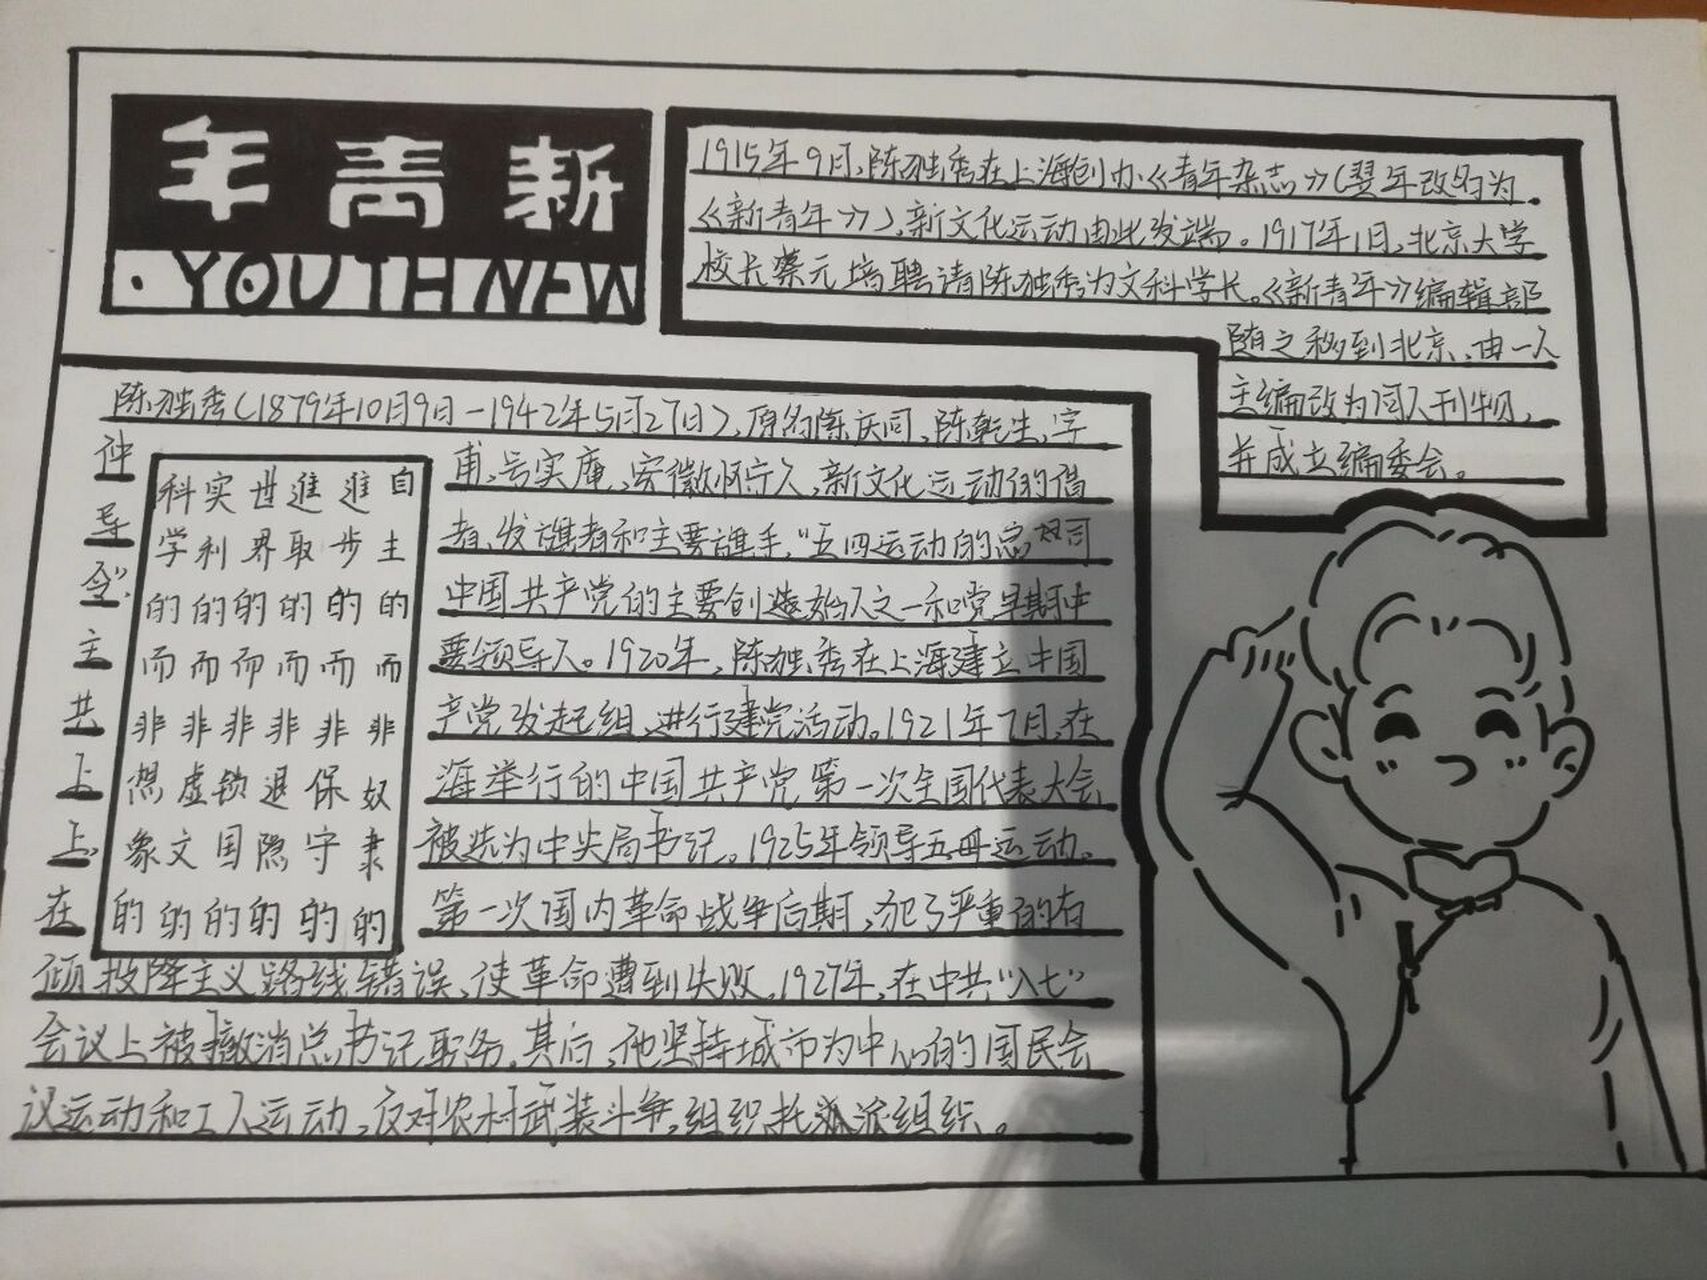 新青年
YOUTH NEW
1915年9月,陈独秀在上海创办《青年杂志》(翌年改名为
《新青年》),新文化运动由此发端。1917年1月,北京大学
校长蔡元培聘请陈独秀为文科学长。《新青年》编辑部
随之移到北京、由一人
主编改为同人刊物,
并成立编委会。
陈独秀(1879年10月9日-1942年5月27日),原名陈庆同、陈乾生、字
仲 甫、号实庵、安徽怀宁人、新文化运动的倡
导 者、发旗者和主要旗手,“五四运动的总司
令”, 中国共产党的主要创造始人之一和党早期
主 要领导人。1920年,陈独秀在上海建立中国
共 产党发起组、进行建党活动。1921年7月,在
上 海举行的中国共产党第一次全国代表大会
上, 被选为中央局书记。1925年领导五卅运动。
在 第一次国内革命战争后期,犯了严重的右
倾投降主义路线错误、使革命遭到失败。1927年,在中共“八七”
会议上被撤消总书记职务。其后,他坚持城市为中心的国民会
议运动和工人运动,反对农村武装斗争,组织托派组织。
自主的而非奴隶的
進步的而非保守的
進取的而非退隐的
世界的而非锁国的
实利的而非虚文的
科学的而非想象的